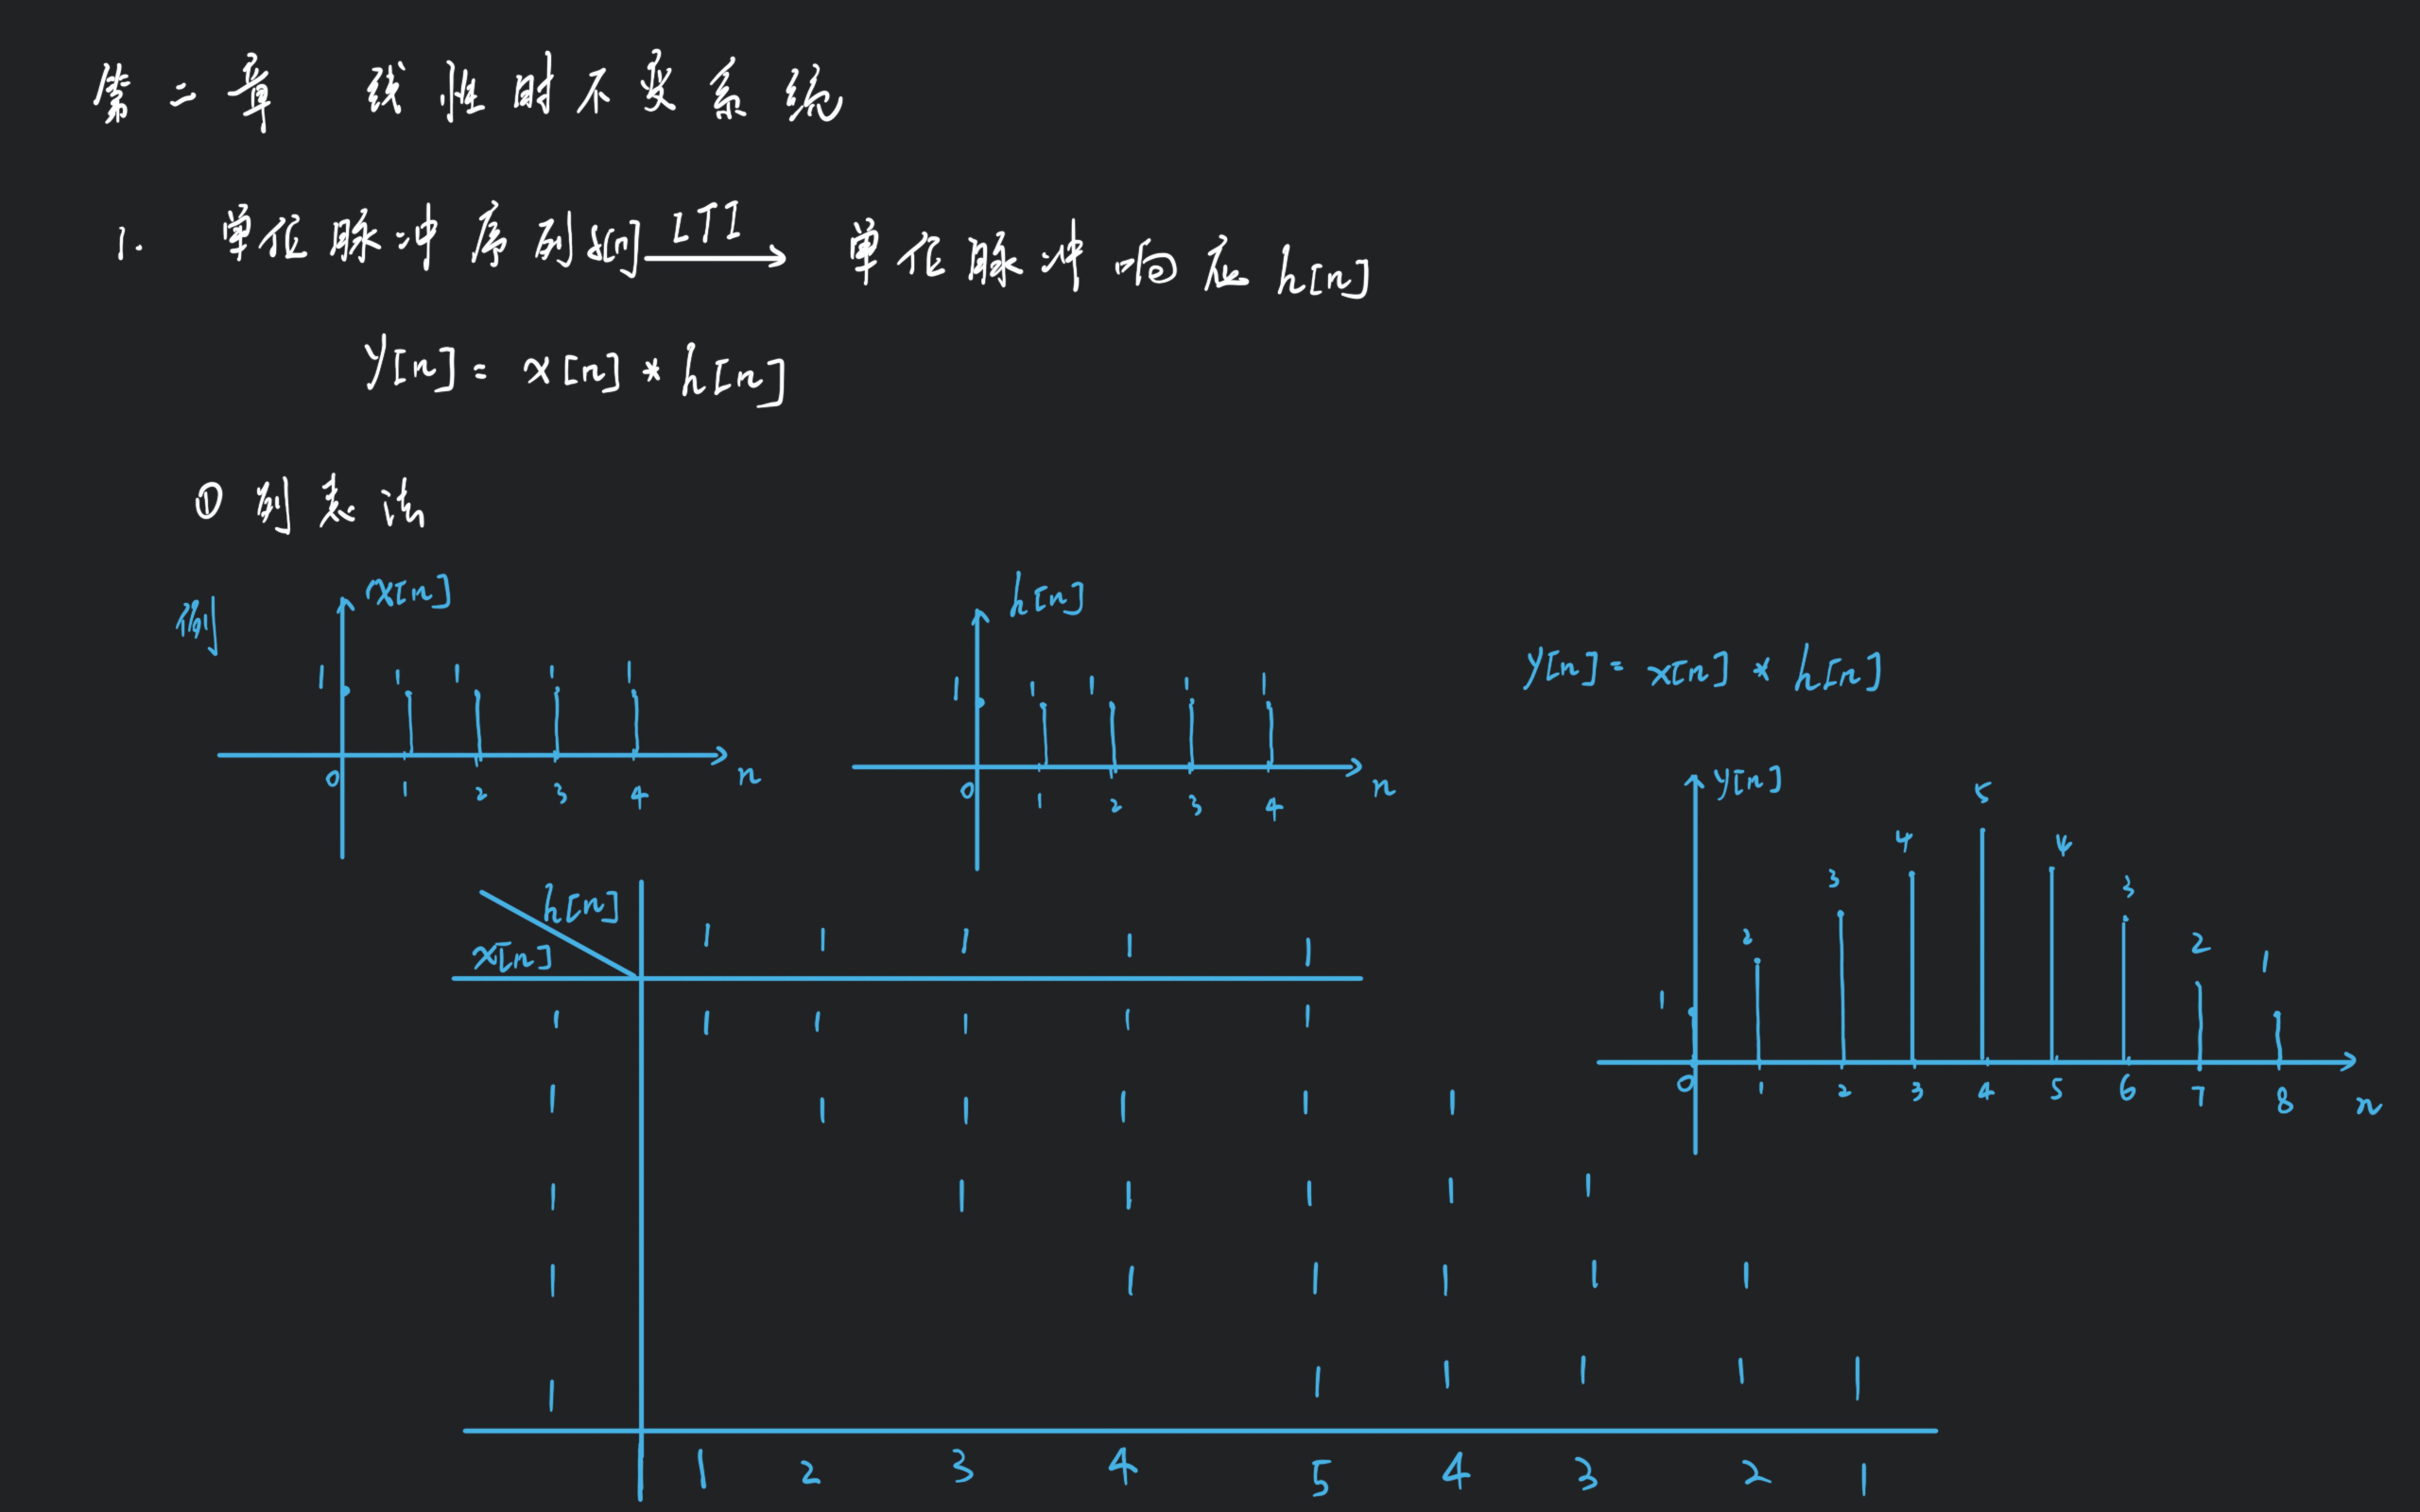 第二章 线性时不变系统
1. 单位脉冲序列δ[n] LTI→ 单位脉冲响应 h[n]
y[n] = x[n] * h[n]
① 列表法
例
x[n]
1 1 1 1 1
0 1 2 3 4 n
h[n]
1 1 1 1 1
0 1 2 3 4 n
y[n] = x[n] * h[n]
y[n]
1 2 3 4 5 4 3 2 1
0 1 2 3 4 5 6 7 8 n
h[n]
x[n]
1 1 1 1 1
1 1 1 1 1 1
1 1 1 1 1 1
1 1 1 1 1 1
1 1 1 1 1 1
1 1 1 1 1 1
1 2 3 4 5 4 3 2 1